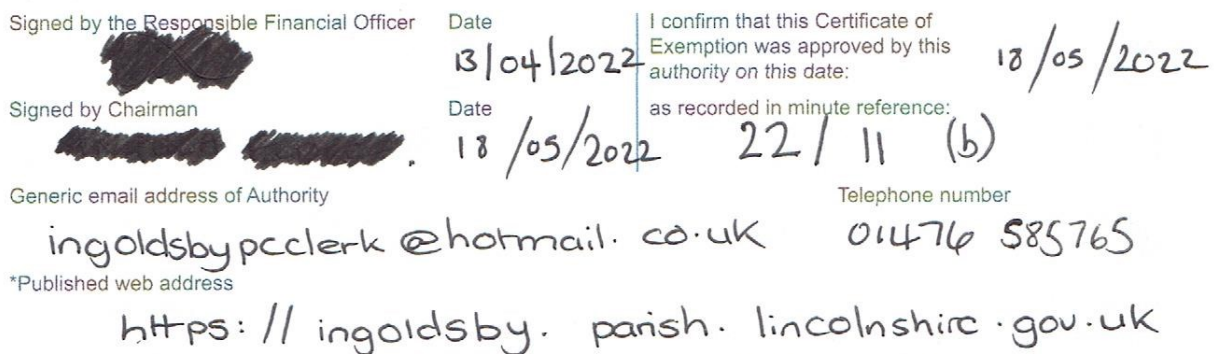 Signed by the Responsible Financial Officer
Date
13/04/2022
I confirm that this Certificate of
Exemption was approved by this
authority on this date:
18/05/2022
Signed by Chairman
Date
18/05/2022
as recorded in minute reference:
22/11 (b)
Generic email address of Authority
Telephone number
ingoldsbypcclerk@hotmail.co.uk
01476 585765
*Published web address
https://ingoldsby.parish.lincolnshire.gov.uk